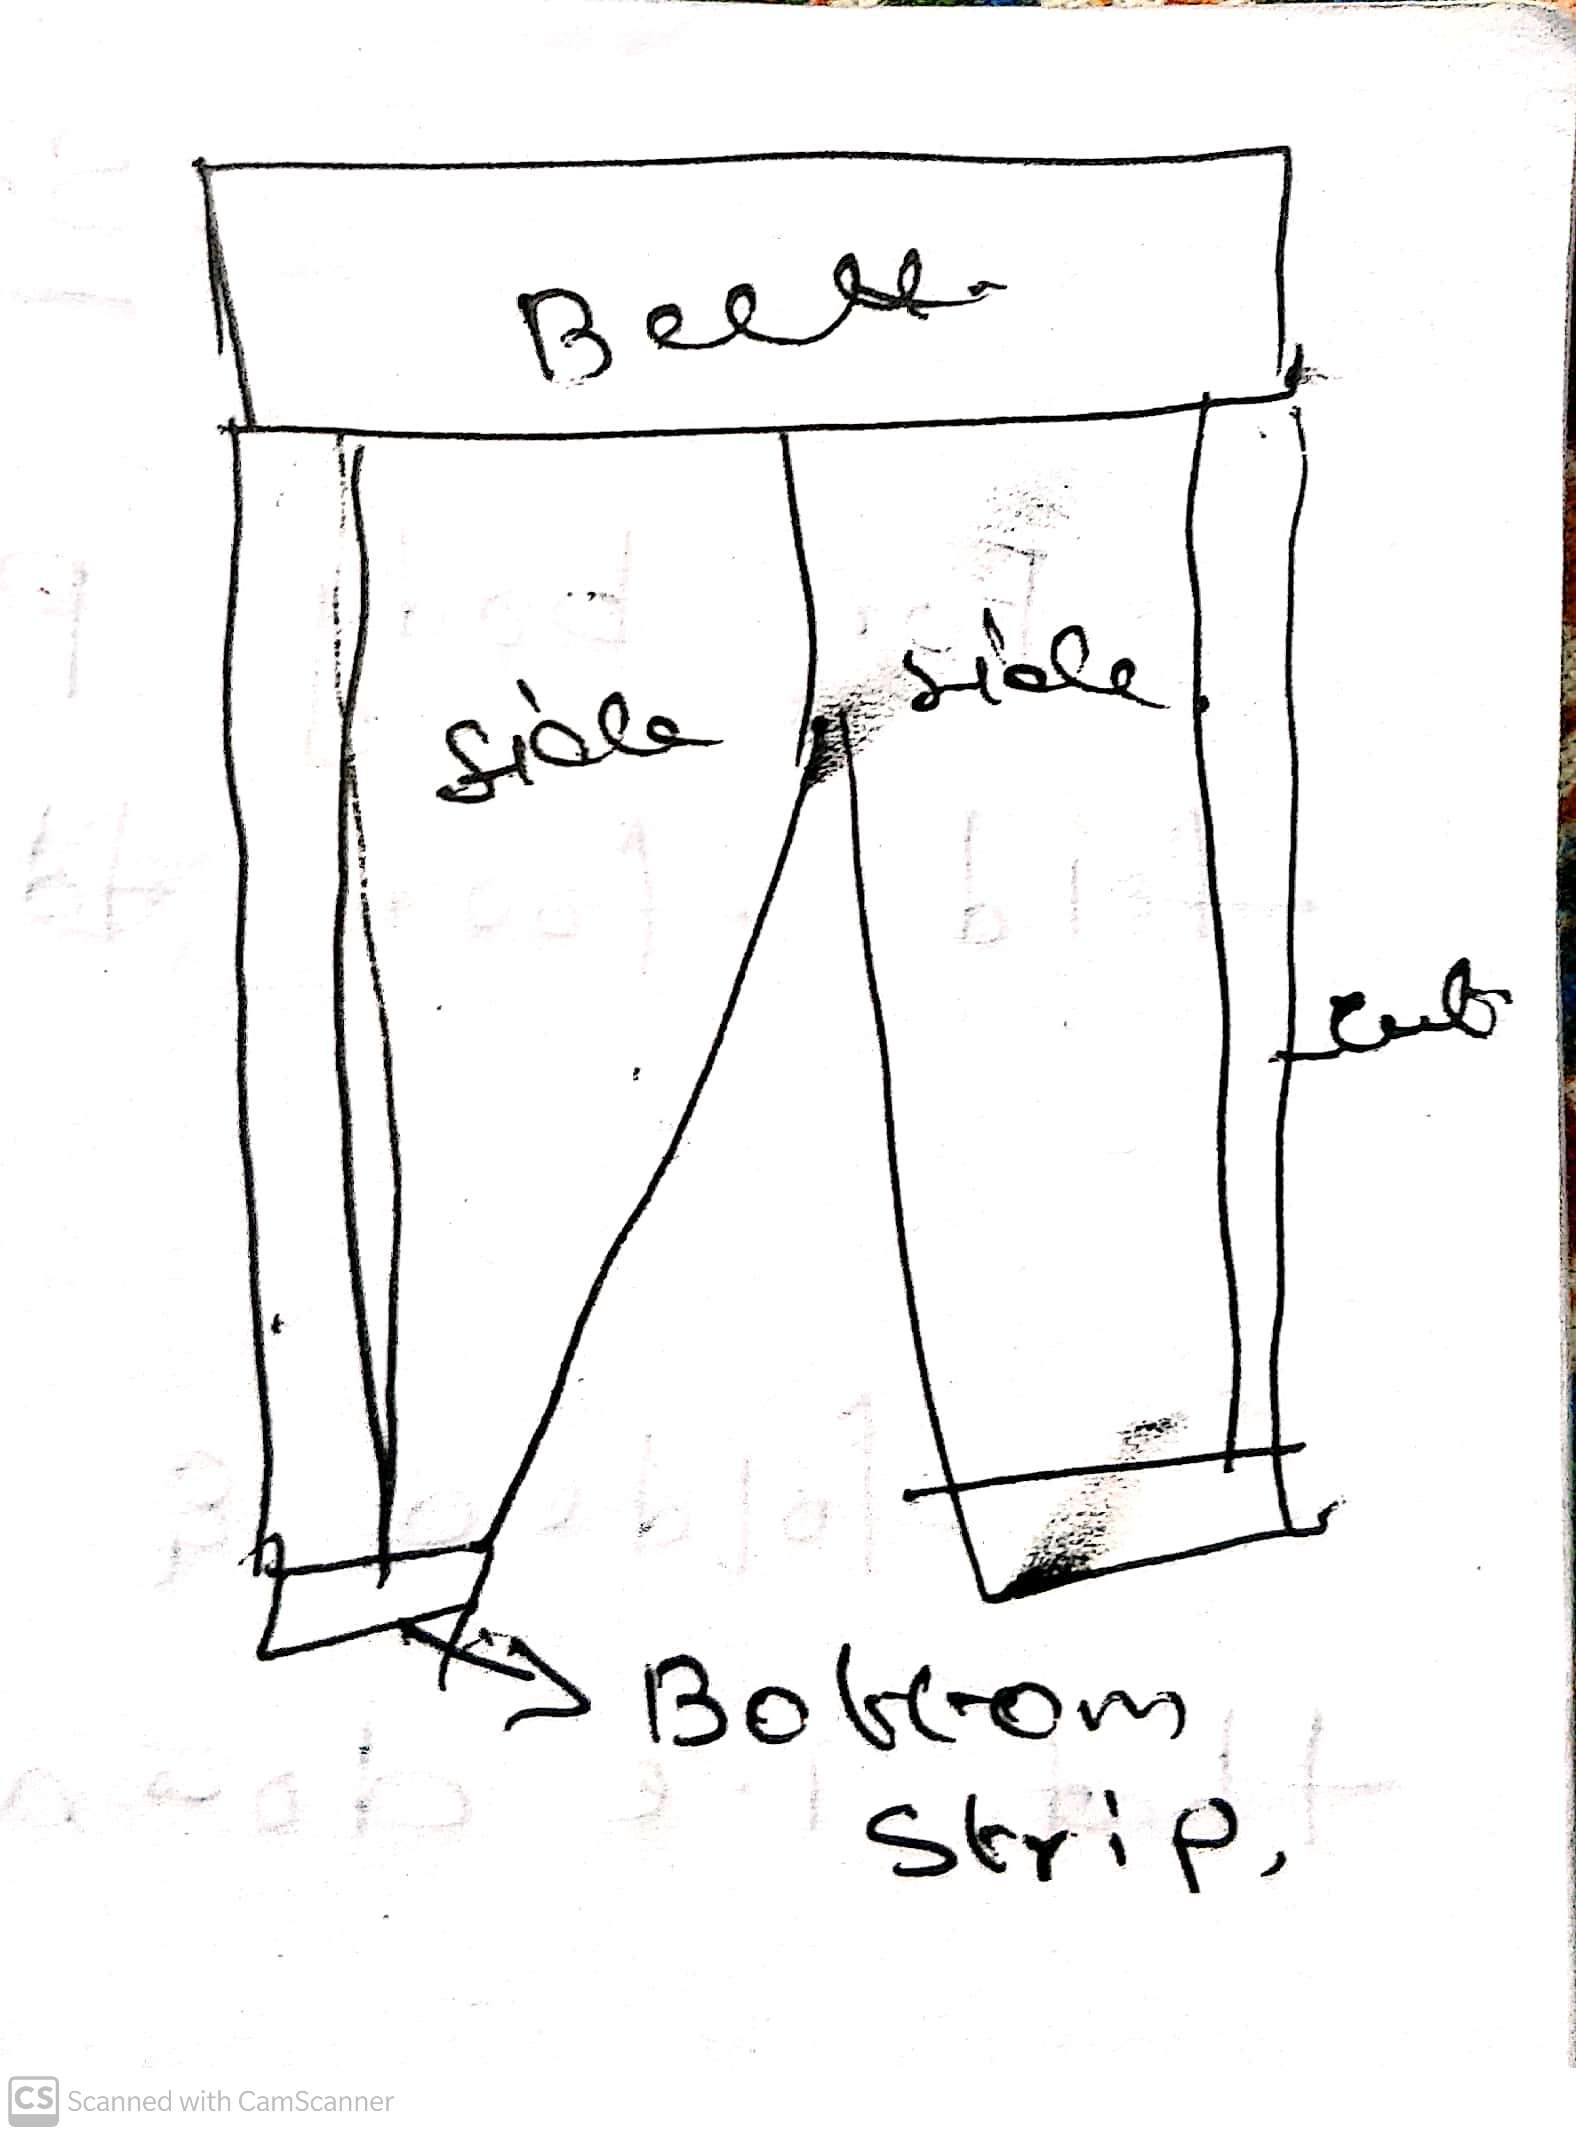 Belt
side
side
Cut
Bottom
Strip,
CS Scanned with CamScanner